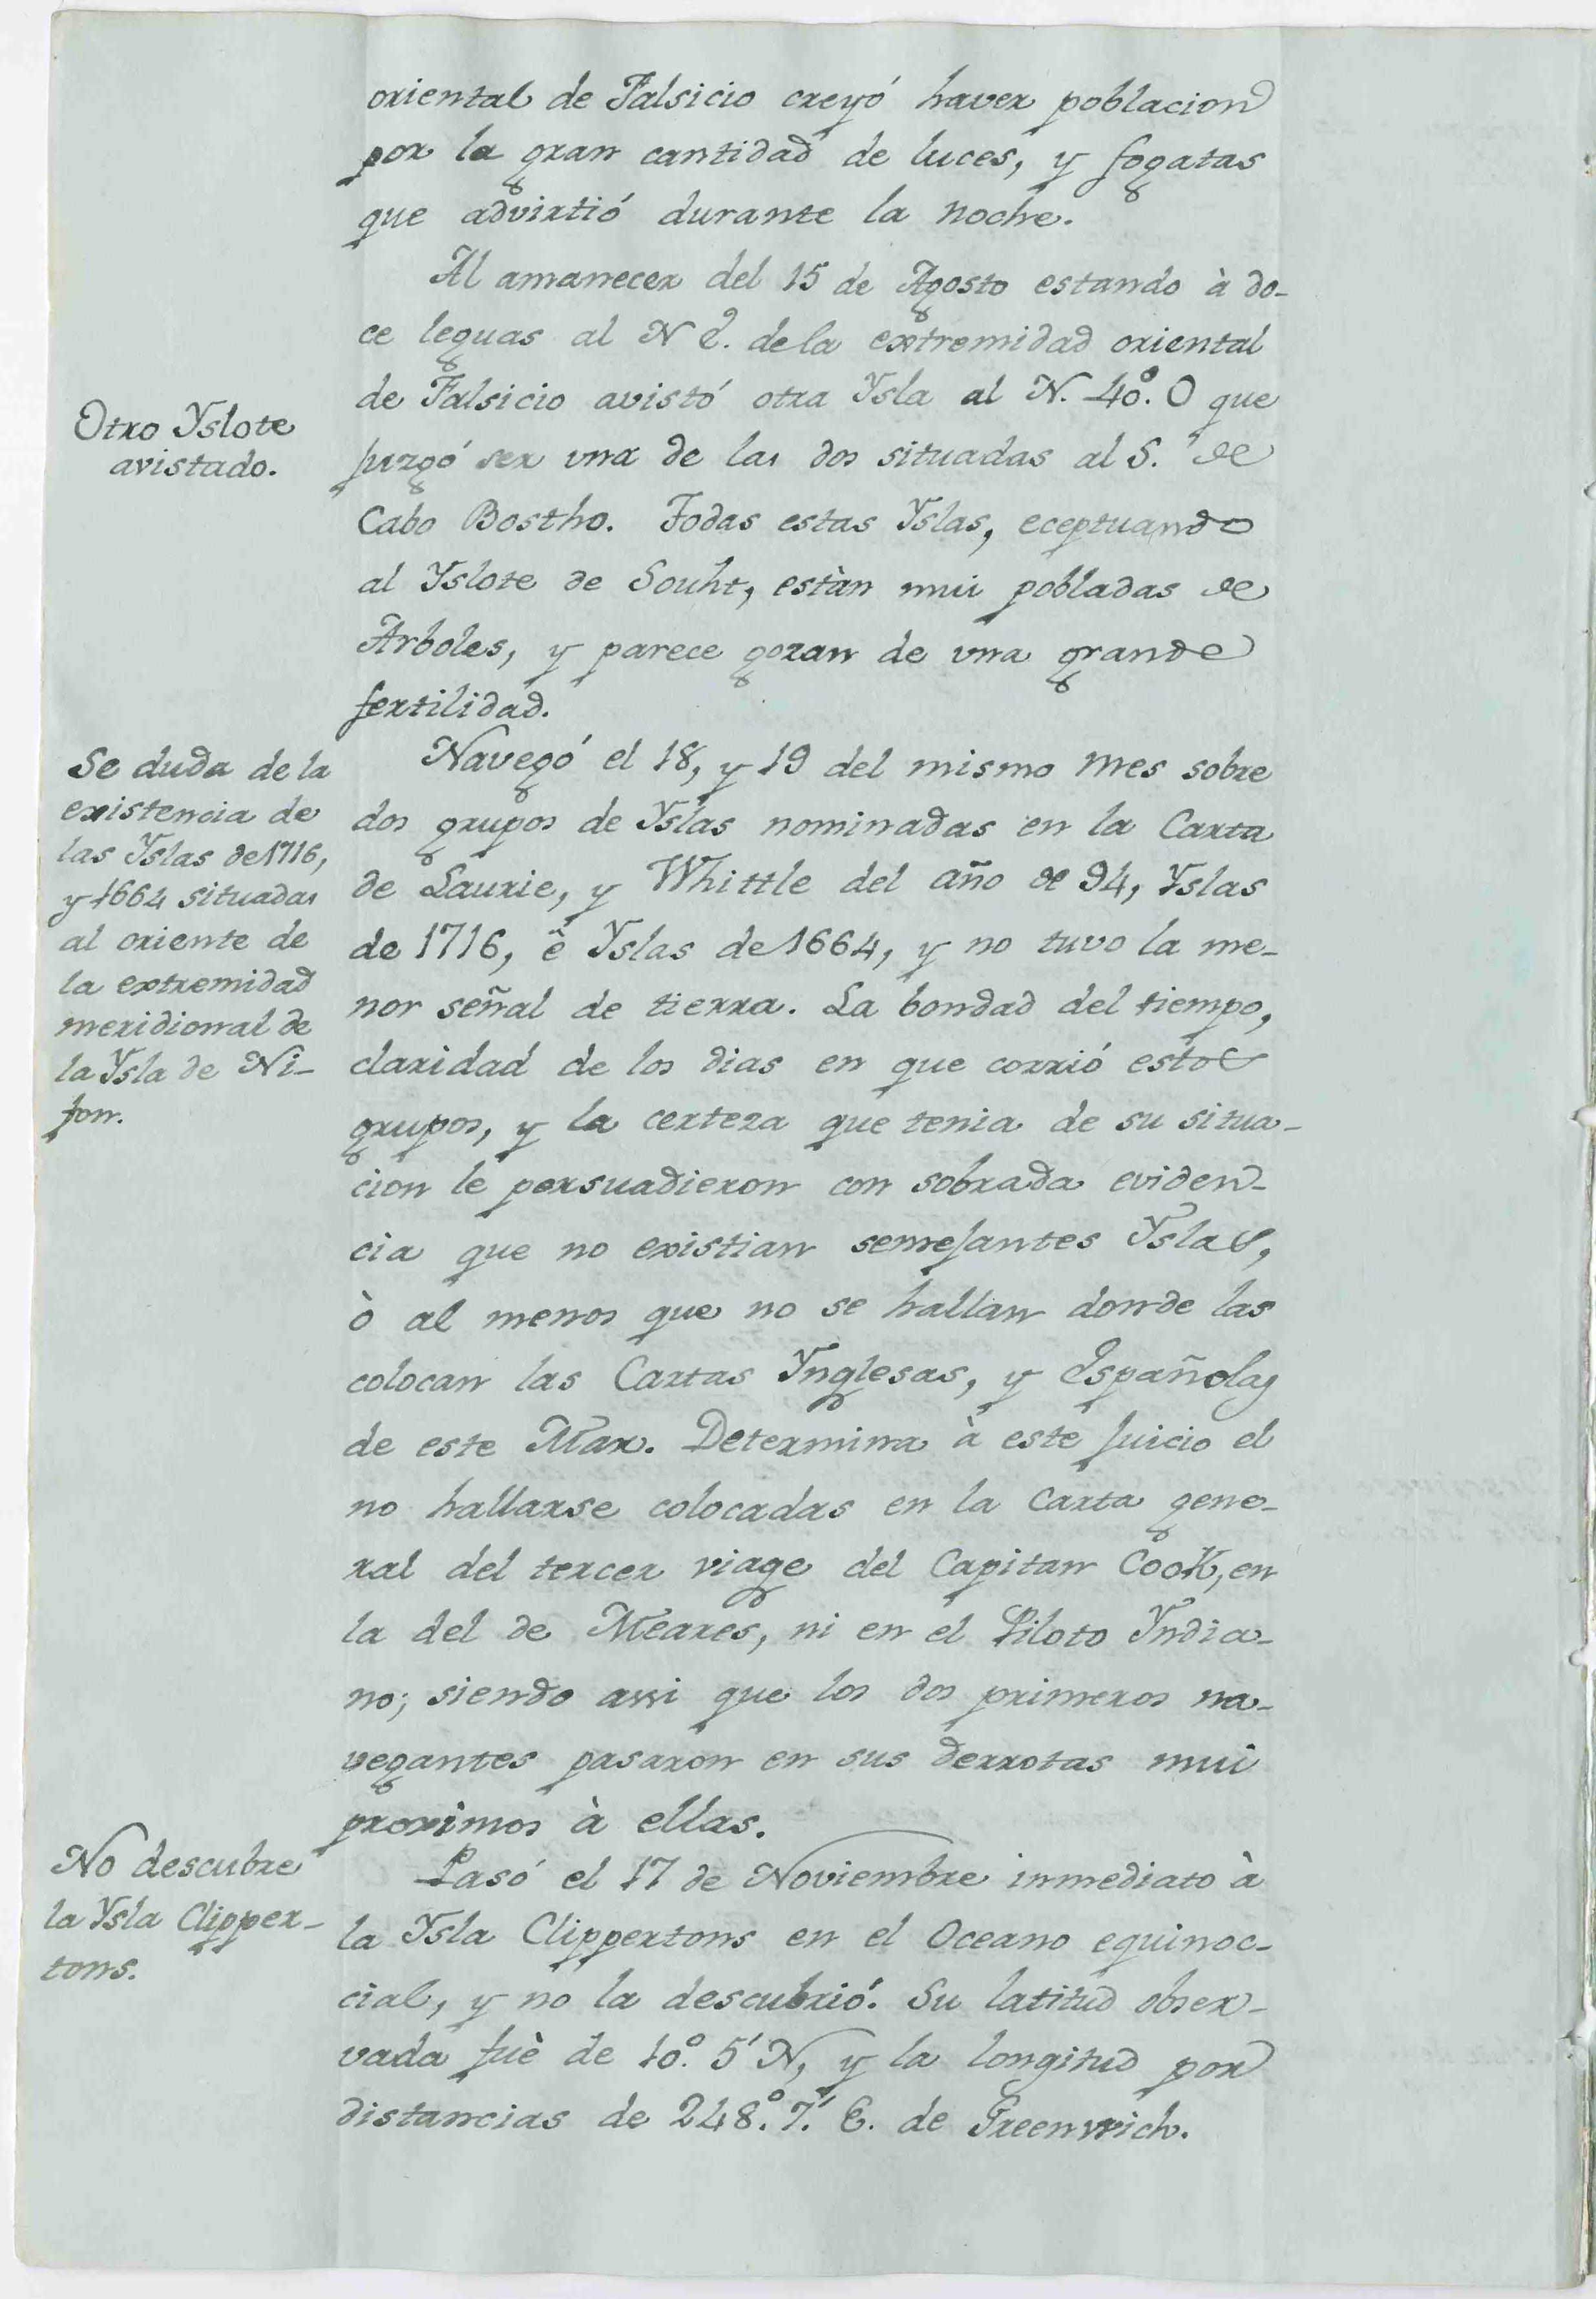 oriental de Falsicio creyó haver poblacion
por la gran cantidad de luces, y fogatas
que advirtió durante la noche.
Al amanecer del 15 de Agosto estando à do-
ce leguas al N E. dela extremidad oriental
Otro Yslote
avistado.
de Falsicio avistó otra Ysla al N. 40º. O que
juzgó ser una de las dos situadas al S. de
Cabo Bostho. Todas estas Yslas, eceptuando
al Yslote de Souht, estàn mui pobladas de
Arboles, y parece gozan de una grande
fertilidad.
Se duda de la
existencia de
las Yslas de 1716,
y 1664 situadas
al oriente de
la extremidad
meridional de
la Ysla de Ni-
fon.
Navegó el 18, y 19 del mismo mes sobre
dos grupos de Yslas nominadas en la Carta
de Laurie, y Whittle del año de 94, Yslas
de 1716, ê Yslas de 1664, y no tuvo la me-
nor señal de tierra. La bondad del tiempo,
claridad de los dias en que corrió estos
grupos, y la certeza que tenia de su situa-
cion le persuadieron con sobrada eviden-
cia que no existian semejantes Yslas,
ò al menos que no se hallan donde las
colocan las Cartas Ynglesas, y Españolas
de este Mar. Determina à este juicio el
no hallarse colocadas en la Carta gene-
ral del tercer viage del Capitan CooK, en
la del de Meares, ni en el Piloto Yndia-
no; siendo assi que los dos primeros na-
vegantes pasaron en sus derrotas mui
proximos à ellas.
No descubre
la Ysla Clipper-
tons.
Pasó el 17 de Noviembre inmediato à
la Ysla Clippertons en el Oceano equinoc-
cial, y no la descubrió. Su latitud obser-
vada fuè de 10º. 5' N, y la longitud por
distancias de 248º. 7.' E. de Greenwich.